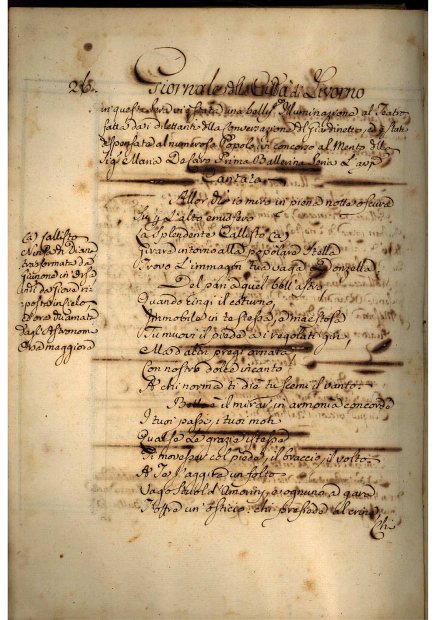 Giornale della Città di Livorno
in questa sera vi è stata una bellis.ma Illuminazione al Teatro
fatta da Dilettanti della Conversazione del Giardinetto, ed è stata
dispensata al numeroso Popolo, in concorso al Merito della
Sig.ra Maria Prima Ballerina Seria
Cantata
Allor ch'io miro in piena notte oscura
Su l'altro emisfero
La Splendente Callisto (a)
Girare intorno alla popolare Stella
Trovo l'immagin tua vaga Donzella.
Del pari a quel bell'astro
Quando cingi il coturno,
Immobile in te stessa, e maestosa
Tu muovi il piede a i regolati giri,
Ma d'altri pregi ornata
Con nostro dolce incanto
A chi norma ti dià tu scemi il vanto.
Bello è il mirar in armonia concorde
I tuoi passi, i tuoi moti
Qual se le grazie istesse
Ti movesser col piede, il braccio, il volto.
A Te s'aggira un folto
Vago Stuol d'Amorini, e ognuno a gara
T'offre un ossequio: chi al crine
Ch
(a) Callisto
Ninfa di
trasformata da
Giunone in Orsa
indi da Giove ri-
posta in Cielo
ed ora chiamata
dagl'Astronomi
Orsa maggiore